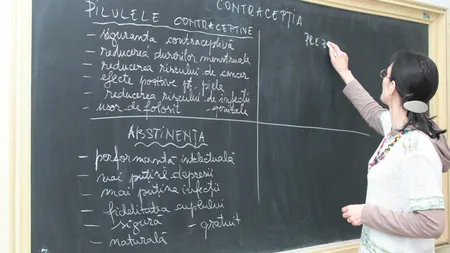 CONTRACEPȚIA
PILULELE CONTRACEPTIVE
- siguranta contraceptivă
- reducerea durerilor menstruale
- reducerea riscului de cancer
- efecte positive pt. piele
- reducerea riscului de infecții
- usor de folosit - genitale
ABSTINENȚA
- performanță intelectuală
- mai puține depresii
mai puține infecții
- fidelitatea cuplului
- sigură - gratuit
- naturală
PREZ